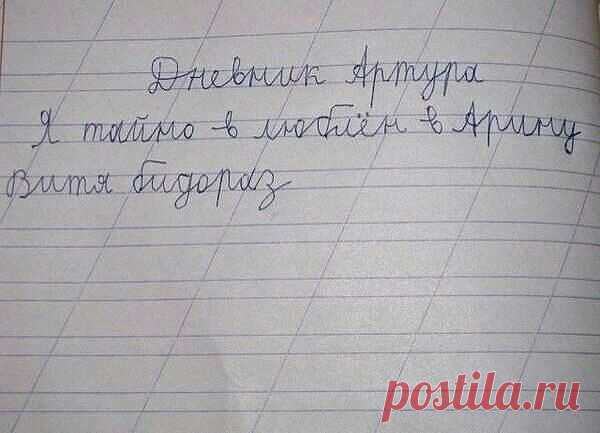 Дневник Артура
Я таймо в люблён в Арину
Витя бидораз
postila.ru